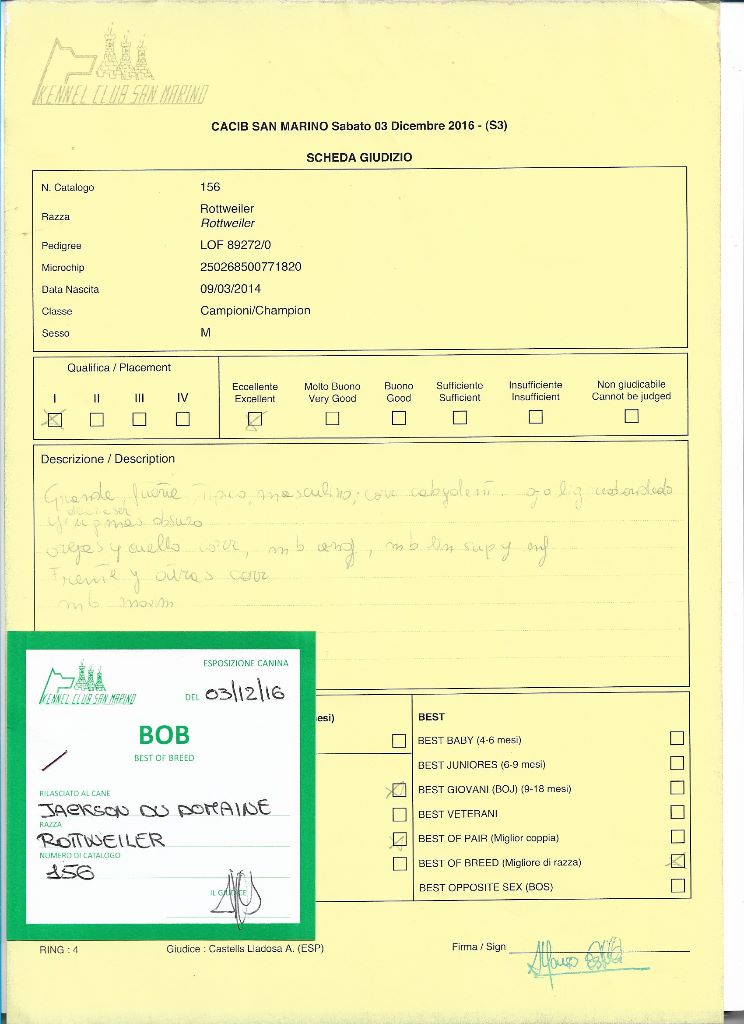 KENNEL CLUB SAN MARINO
CACIB SAN MARINO Sabato 03 Dicembre 2016 - (S3)
SCHEDA GIUDIZIO
N. Catalogo 156
Razza Rottweiler
Rottweiler
Pedigree LOF 89272/0
Microchip 250268500771820
Data Nascita 09/03/2014
Classe Campioni/Champion
Sesso M
Qualifica / Placement
I II III IV
Eccellente Molto Buono Buono Sufficiente Insufficiente Non giudicabile
Excellent Very Good Good Sufficient Insufficient Cannot be judged
Descrizione / Description
Grande, fuerte, tipico, masculino, con
mas obscuro
orejas y cuello corr, mb ang, mb lin sup y inf
Frente y atras corr
mb movim
esi)
BEST
BEST BABY (4-6 mesi)
BEST JUNIORES (6-9 mesi)
BEST GIOVANI (BOJ) (9-18 mesi)
BEST VETERANI
BEST OF PAIR (Miglior coppia)
BEST OF BREED (Migliore di razza)
BEST OPPOSITE SEX (BOS)
ESPOSIZIONE CANINA
KENNEL CLUB SAN MARINO
DEL 03/12/16
BOB
BEST OF BREED
RILASCIATO AL CANE
JACKSON DU DOMAINE
RAZZA
ROTTWEILER
NUMERO DI CATALOGO
156
IL GIUDICE
RING : 4 Giudice : Castells Lladosa A. (ESP) Firma / Sign